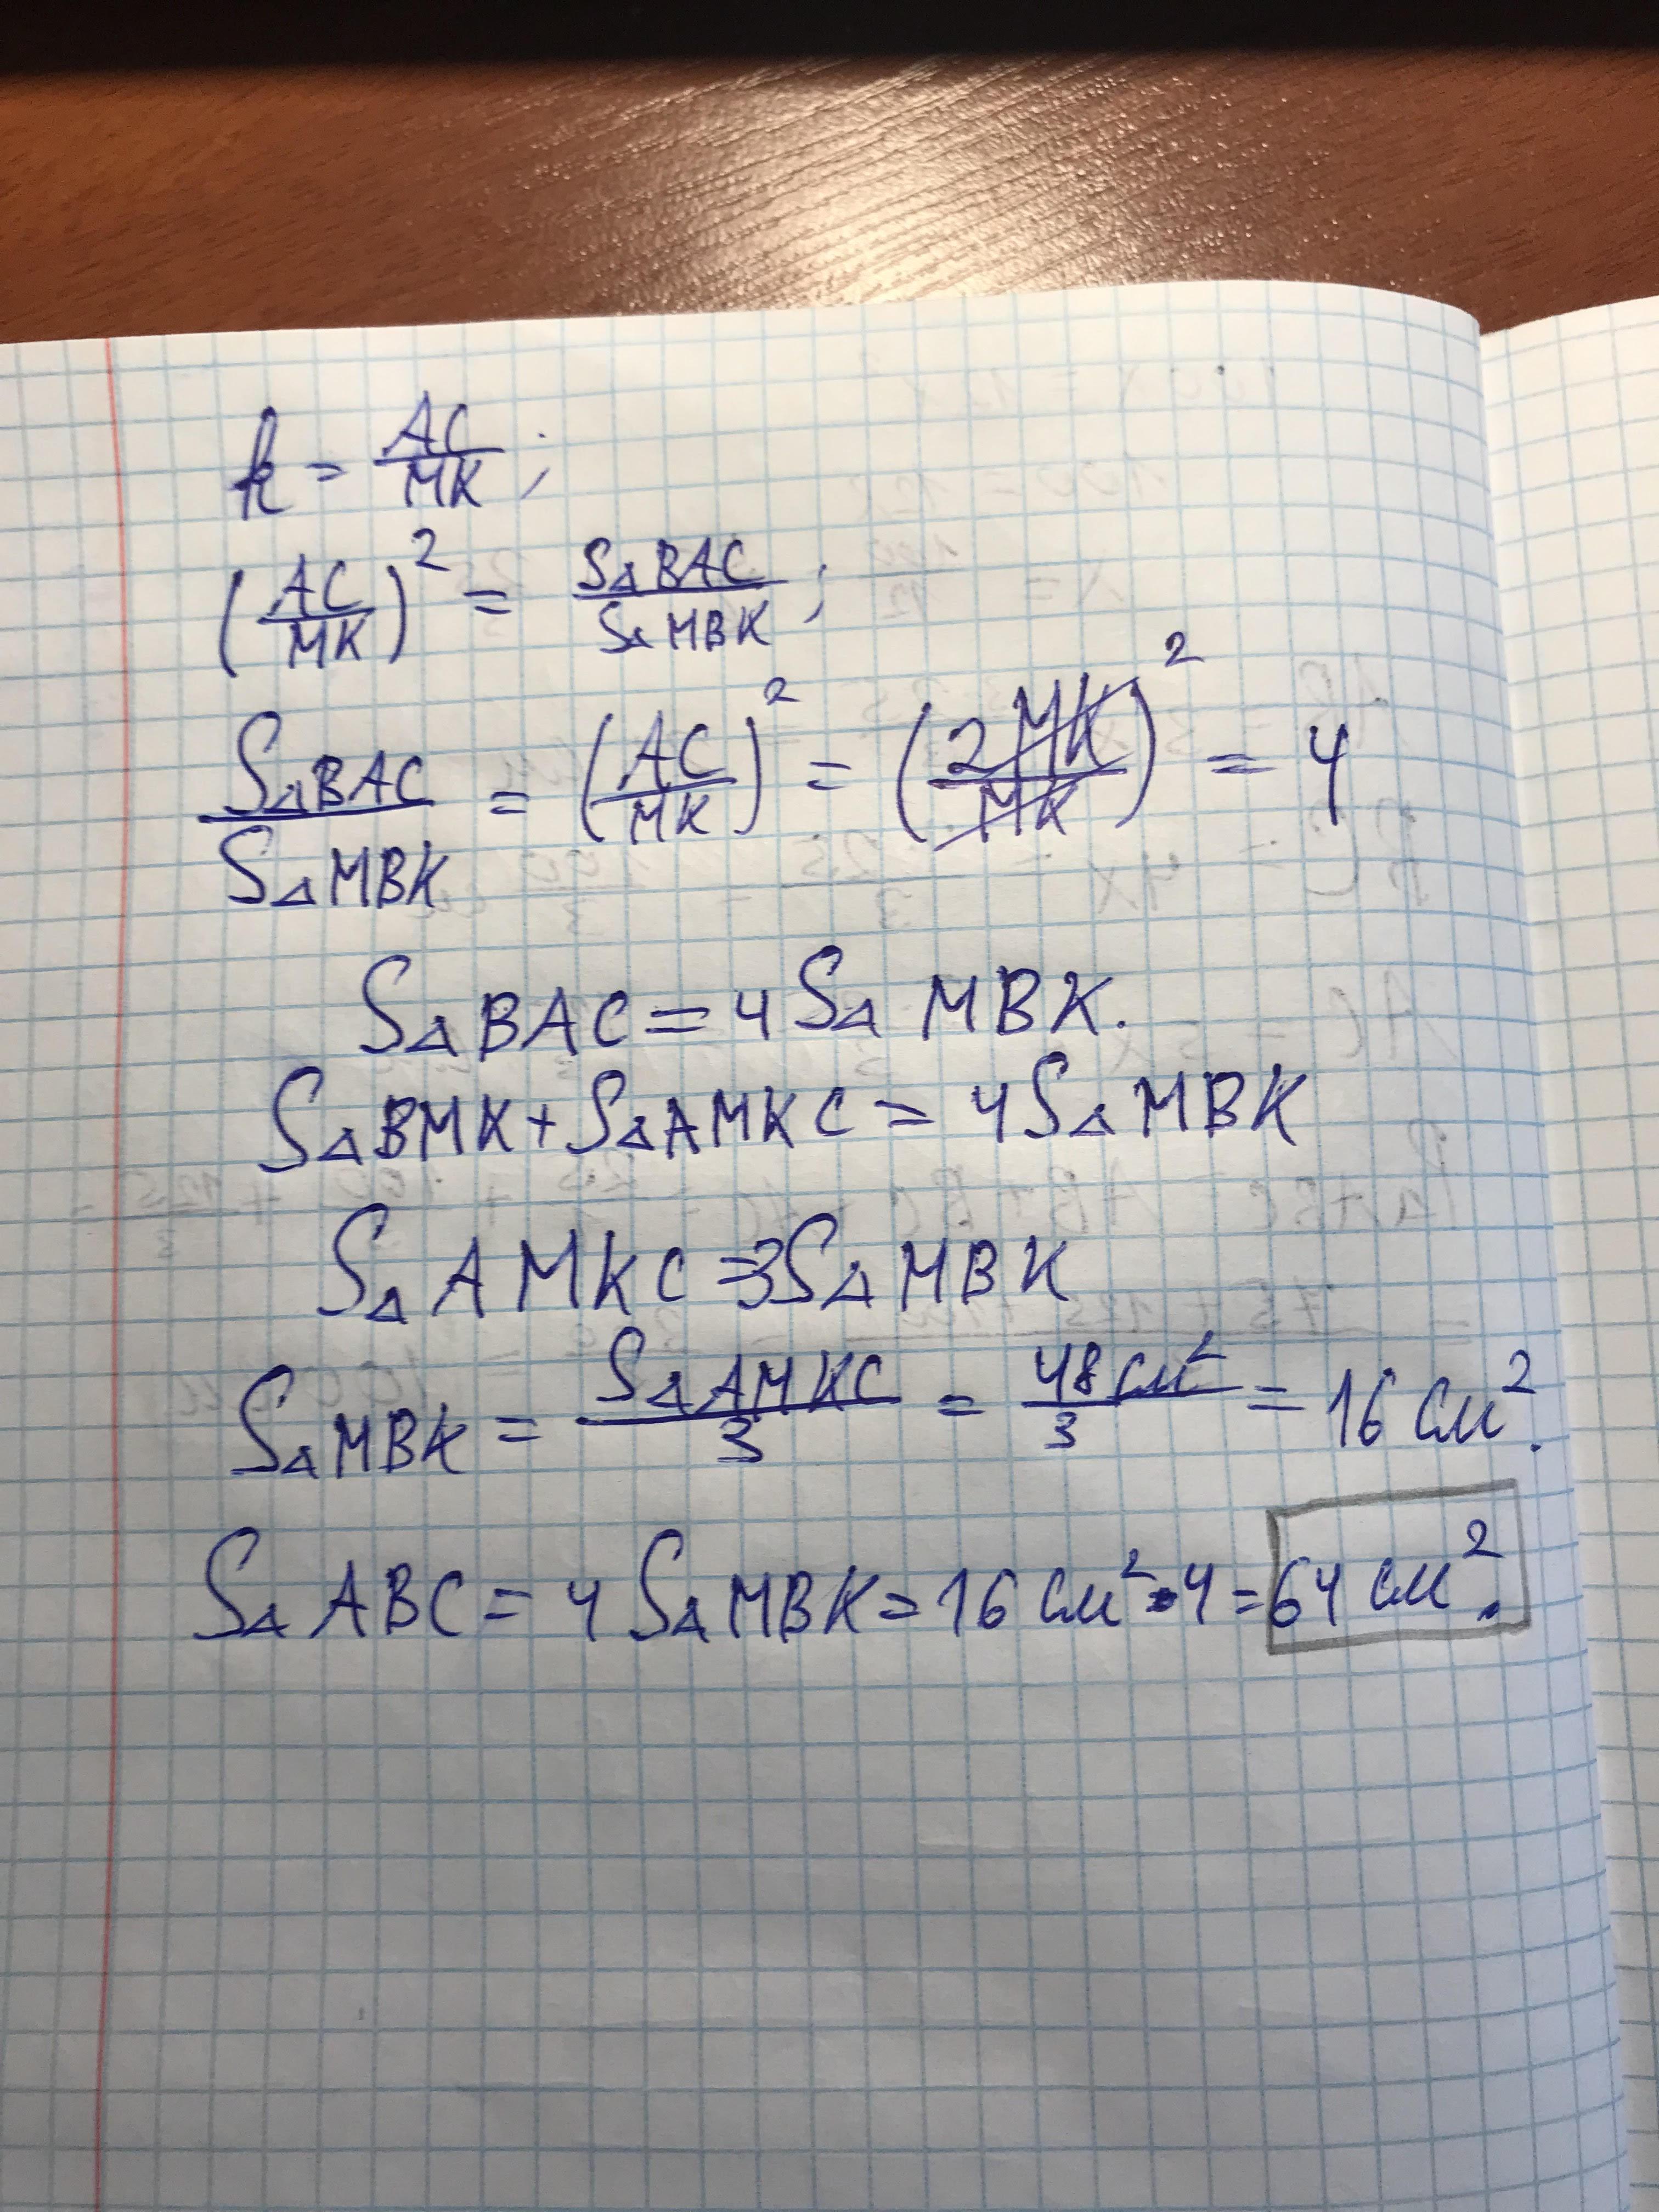 k = AC/MK;
(AC/MK)² = S△BAC/S△MBK;
S△BAC/S△MBK = (AC/MK)² = (2MK/MK)² = 4
S△BAC = 4S△ MBK.
S△BMK + S△AMKC = 4S△MBK
S△AMKC = 3S△MBK
S△MBK = S△AMKC/3 = 48 см²/3 = 16 см².
S△ABC = 4 S△MBK = 16 см² · 4 = 64 см².